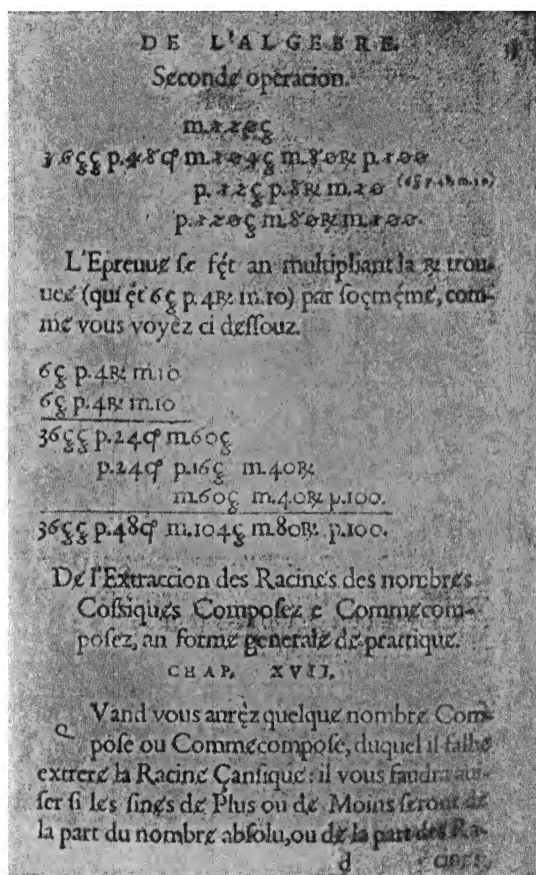 DE L'ALGEBRE.
Seconde operacion.
m.120ç
36çç p.48ꝗ m.104ç m.80R̸ p.100
p.12ç p.8R̸ m.10 (6ç p.4R̸ m.10)
p.120ç m.80R̸ m.100.
L'Epreuuę ſe fęt an multipliant la R̸ trou-
ueę (qui ęt 6ç p.4R̸ m.10) par ſoęmęmę, com-
mę vous voyęz ci deſſouz.
6ç p.4R̸ m.10
6ç p.4R̸ m.10
36çç p.24ꝗ m.60ç
p.24ꝗ p.16ç m.40R̸
m.60ç m.40R̸ p.100.
36çç p.48ꝗ m.104ç m.80R̸ p.100.
De l'Extraccion des Racinęs des nombręs
Coſſiquęs Compoſez e Commęcom-
poſez, an formę generalę de prattiquę.
CHAP. XVII.
QVand vous auręz quelquę nombrę Com-
poſe ou Commęcompoſe, duquel il falhę
extręrę la Racinę Çanſiquę: il vous faudra aui-
ſer ſi les ſinęs de Plus ou de Moins ſeront de
la part du nombrę abſolu, ou de la part des Ra-
d